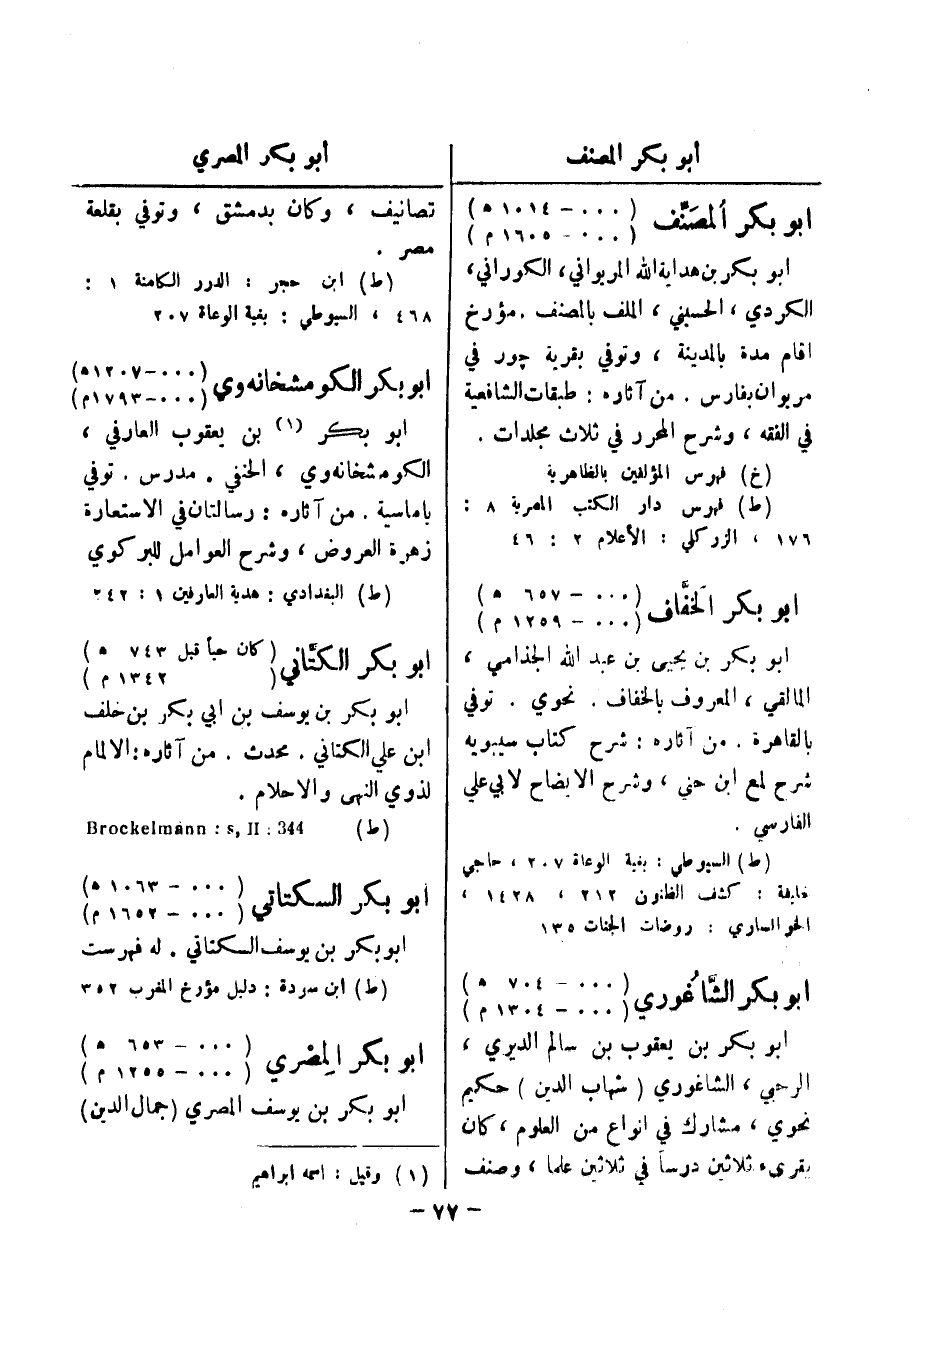 أبو بكر المصنف
ابو بكر المصَنِّف (٠٠٠ - ١٠١٤ هـ)
(٠٠٠ - ١٦٠٥ م)
ابو بكر بن هداية الله المريواني، الكوراني،
الكردي، الحسيني، الملقب بالمصنف. مؤرخ
اقام مدة بالمدينة، وتوفي بقرية چور في
مريوان بفارس. من آثاره: طبقات الشافعية
في الفقه، وشرح المحرر في ثلاث مجلدات.
(خ) فهرس المؤلفين بالظاهرية
(ط) فهرس دار الكتب المصرية ٨:
١٧٦، الزركلي: الأعلام ٢: ٤٦
ابو بكر الخفَّاف (٠٠٠ - ٦٥٧ هـ)
(٠٠٠ - ١٢٥٩ م)
ابو بكر بن يحيى بن عبد الله الجذامي،
المالقي، المعروف بالخفاف. نحوي. توفي
بالقاهرة. من آثاره: شرح كتاب سيبويه
شرح لمع ابن جني، وشرح الايضاح لابي علي
الفارسي.
(ط) السيوطي: بغية الوعاة ٢٠٧، حاجي
خليفة: كشف الظنون ٢١٢، ١٤٢٨،
الخوانساري: روضات الجنات ١٣٥
ابو بكر الشَّاغُوري (٠٠٠ - ٧٠٤ هـ)
(٠٠٠ - ١٣٠٤ م)
ابو بكر بن يعقوب بن سالم الديري،
الرحبي، الشاغوري (شهاب الدين) حكيم
نحوي، مشارك في انواع من العلوم، كان
يقرىء ثلاثين درساً في ثلاثين علما، وصنف
أبو بكر المصري
تصانيف، وكان بدمشق، وتوفي بقلعة
مصر.
(ط) ابن حجر: الدرر الكامنة ١:
٤٦٨، السيوطي: بغية الوعاة ٢٠٧
ابو بكر الكومشخانه وي (٠٠٠ - ١٢٠٧ هـ)
(٠٠٠ - ١٧٩٣ م)
ابو بكر (١) بن يعقوب العارفي،
الكومشخانه وي، الحنفي. مدرس. توفي
باماسية. من آثاره: رسالتان في الاستعارة
زهرة العروض، وشرح العوامل للبركوي
(ط) البغدادي: هدية العارفين ١: ٢٤٢
ابو بكر الكتَّاني (كان حياً قبل ٧٤٣ هـ)
(١٣٤٢ م)
ابو بكر بن يوسف بن ابي بكر بن خلف
ابن علي الكتاني. محدث. من آثاره: الالمام
لذوي النهى والاحلام.
(ط) Brockelmann : s, II : 344
ابو بكر السكتاتي (٠٠٠ - ١٠٦٣ هـ)
(٠٠٠ - ١٦٥٢ م)
ابو بكر بن يوسف السكتاتي. له فهرست
(ط) ابن سردة: دليل مؤرخ المغرب ٣٥٢
ابو بكر المِصْري (٠٠٠ - ٦٥٣ هـ)
(٠٠٠ - ١٢٥٥ م)
ابو بكر بن يوسف المصري (جمال الدين)
(١) وقيل: اسمه ابراهيم
- ٧٧ -